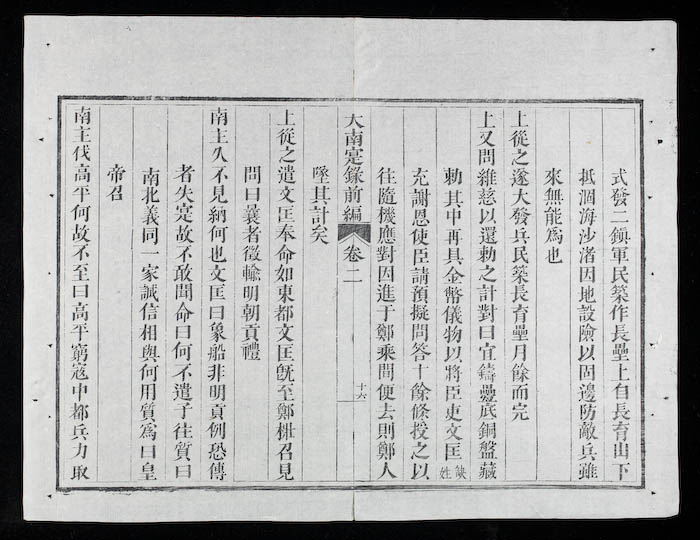 式發二鎮軍民築作長壘上自長育山下
抵洄海沙渚因地設險以固邊防敵兵雖
來無能為也
上從之遂大發兵民築長育壘月餘而完
上又問維慈以還勅之計對曰宜鑄疊底銅盤藏
勅其中再具金幣儀物以將臣吏文匡缺姓
充謝恩使臣請預擬問答十餘條授之以
往隨機應對因進于鄭乘間便去則鄭人
大南寔錄前編 卷二 十六
墜其計矣
上從之遣文匡奉命如東都文匡旣至鄭棩召見
問曰曩者徵輸明朝貢禮
南主久不見納何也文匡曰象船非明貢例恐傳
者失寔故不敢聞命曰何不遣子往質曰
南北義同一家誠信相與何用質為曰皇
帝召
南主伐高平何故不至曰高平窮寇中都兵力取